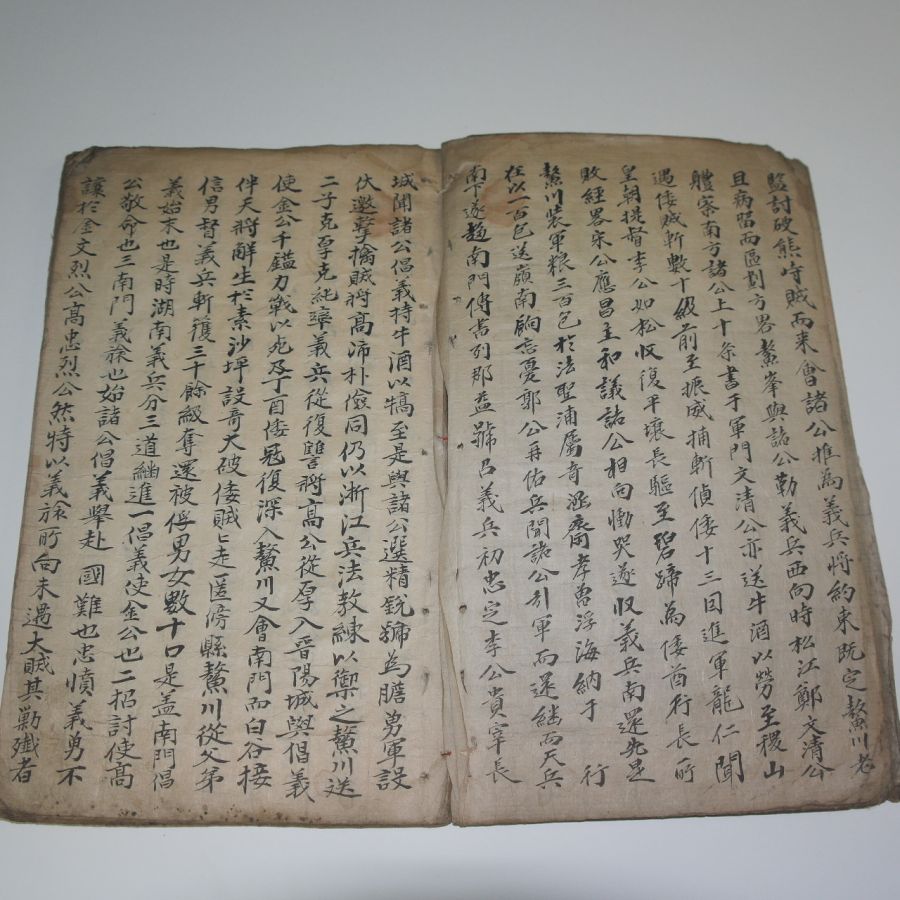 監討破熊峙賊而來會諸公推為義兵將約束既定鰲川老
且病留而區劃方畧鰲峯與諸公勒義兵西向時松江鄭文清公
軆察南方諸公上十条書于軍門文清公亦送牛酒以勞至稷山
遇倭賊斬數十級前至振威捕斬偵倭十三回進軍龍仁聞
皇朝提督李公如松収復平壤長驅至碧蹄為倭酋行長所
敗經畧宋公應昌主和議諸公相向慟哭遂収義兵南還先是
鰲川装軍粮三百包於法聖浦属奇孝曾浮海納于 行
在以一百包送嶺南餉忘憂郭公再佑兵聞諸公引軍而還継而天兵
南下遂趍南門傳言列郡益號召義兵初忠定李公貴宰長
城聞諸公倡義持牛酒以犒至是與諸公選精銳號為膽勇軍設
伏邀擊擒賊將高沛朴儉同仍以淅江兵法教練以禦之鰲川送
二子克孚克純率義兵從復讐將高公從厚入晋陽城與倡義
使金公千鎰力戰以死及丁酉倭冦復深入鰲川又會南門而白谷接
伴天將解生於素沙坪設奇大破倭賊賊走匿傍縣鰲川從父弟
信男督義兵斬獲三十餘級奪還被俘男女數十口是盖南門倡
義始末也是時湖南義兵分三道継進一倡義使金公也二招討使高
公敬命也三南門義旅也始諸公倡義舉赴 國難也忠憤義勇不
讓於金文烈公高忠烈公然特以義旅所向未遇大賊其勦殲者